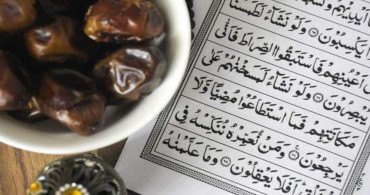 أَيْدِيهِمْ
يَكْسِبُونَ ۝ وَلَوْ نَشَآءُ لَطَمَسْنَا
أَعْيُنِهِمْ فَاسْتَبَقُوا الصِّرَاطَ فَأَنّٰى
يُبْصِرُونَ ۝ وَلَوْ نَشَآءُ لَمَسَخْنٰهُمْ عَلٰى
مَكَانَتِهِمْ فَمَا اسْتَطَاعُوا مُضِيًّا وَّلَا
يَرْجِعُونَ ۝ وَمَنْ نُّعَمِّرْهُ نُنَكِّسْهُ فِى
أَفَلَا يَعْقِلُونَ ۝ وَمَا عَلَّمْنٰهُ